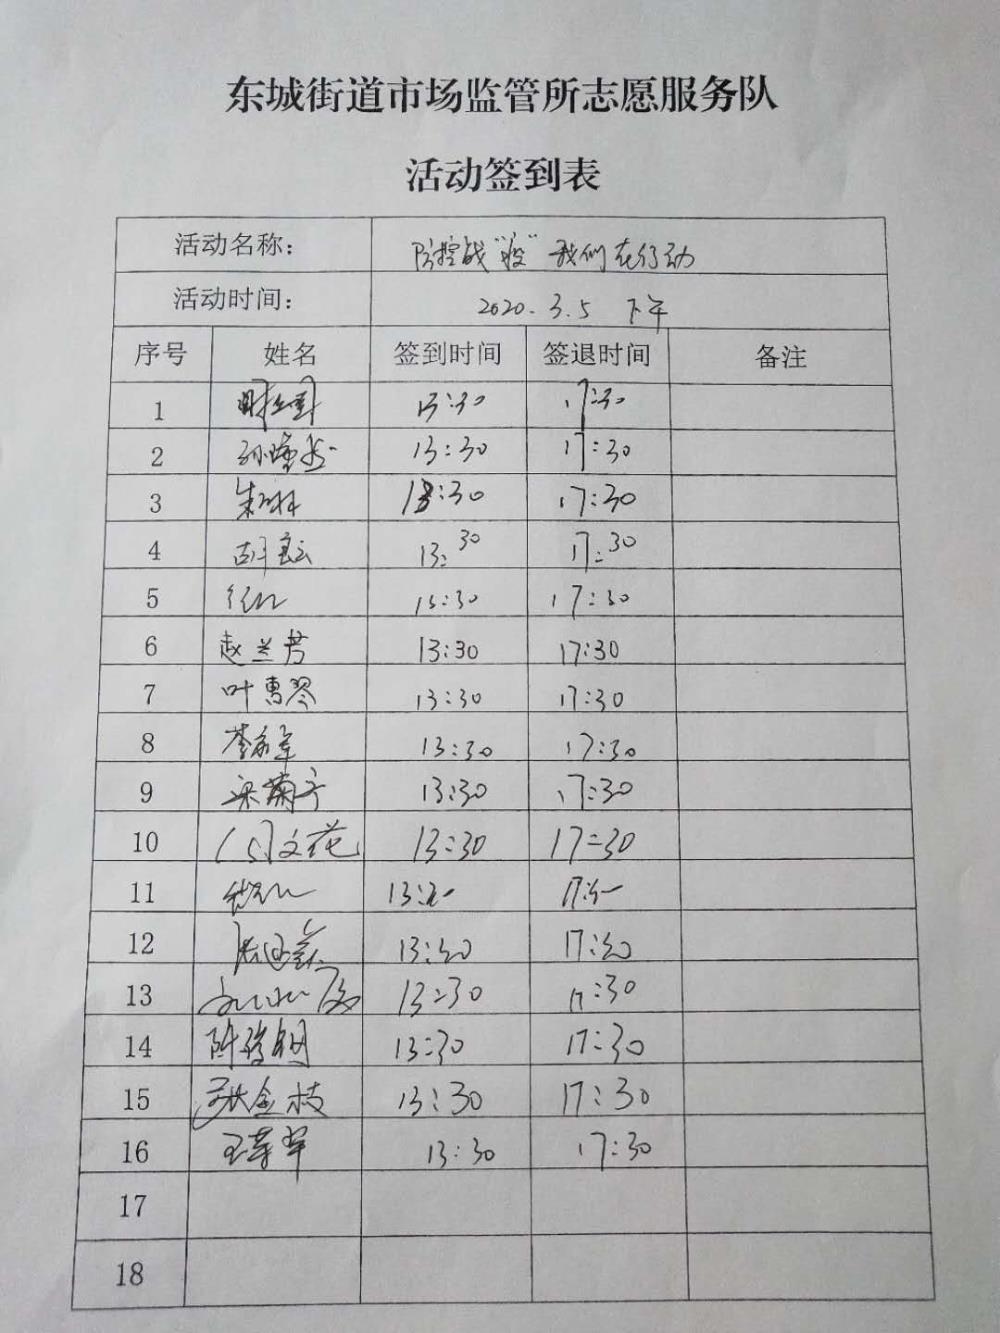 东城街道市场监管所志愿服务队
活动签到表
活动名称： 防控战“疫” 我们在行动
活动时间： 2020.3.5 下午
序号 姓名 签到时间 签退时间 备注
1 13:30 17:30
2 13:30 17:30
3 13:30 17:30
4 13:30 17:30
5 13:30 17:30
6 赵兰芳 13:30 17:30
7 叶惠琴 13:30 17:30
8 13:30 17:30
9 13:30 17:30
10 周文花 13:30 17:30
11
12 13:30 17:30
13 13:30 17:30
14 13:30 17:30
15 洪金枝 13:30 17:30
16 13:30 17:30
17
18